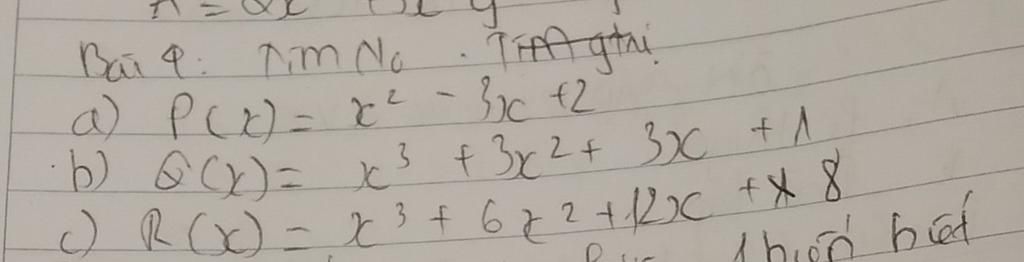 Bài 4: Tìm No.
a) P(x) = x² - 3x + 2
b) Q(x) = x³ + 3x² + 3x + 1
c) R(x) = x³ + 6x² + 12x + 8
biết